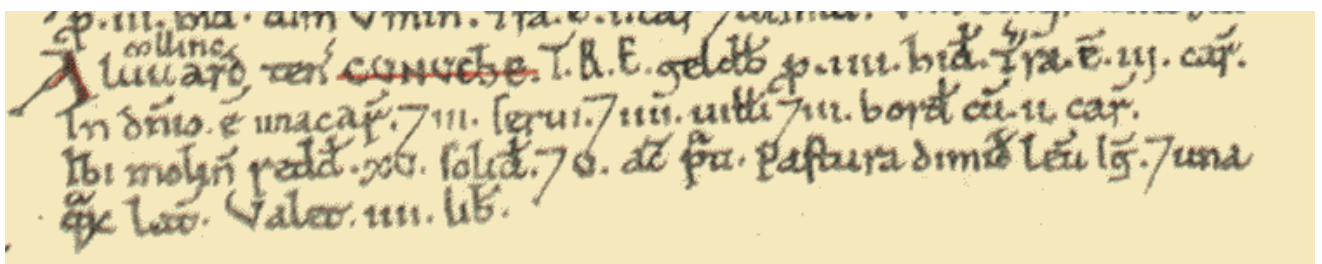 p.iii.hid. dim̄ V min̄. Tr̄a.ē.
colline
Aluuard teñ CUNUCHE. T.R.E. geldb̄ p.iiii.hid̄. Tr̄a.ē.iij.car̄.
In dñio.ē una car̄.7 iii. serui.7 iiii. uill̄i 7 iii. bord̄ cū.ii. car̄.
Ibi molin̄ redd̄.xv. solid̄.7 v. ac̄ p̄ti. Pastura dimid̄ leū lḡ.7 una
q̄ꝝ lat̄. Valet.iiii. lib̄.